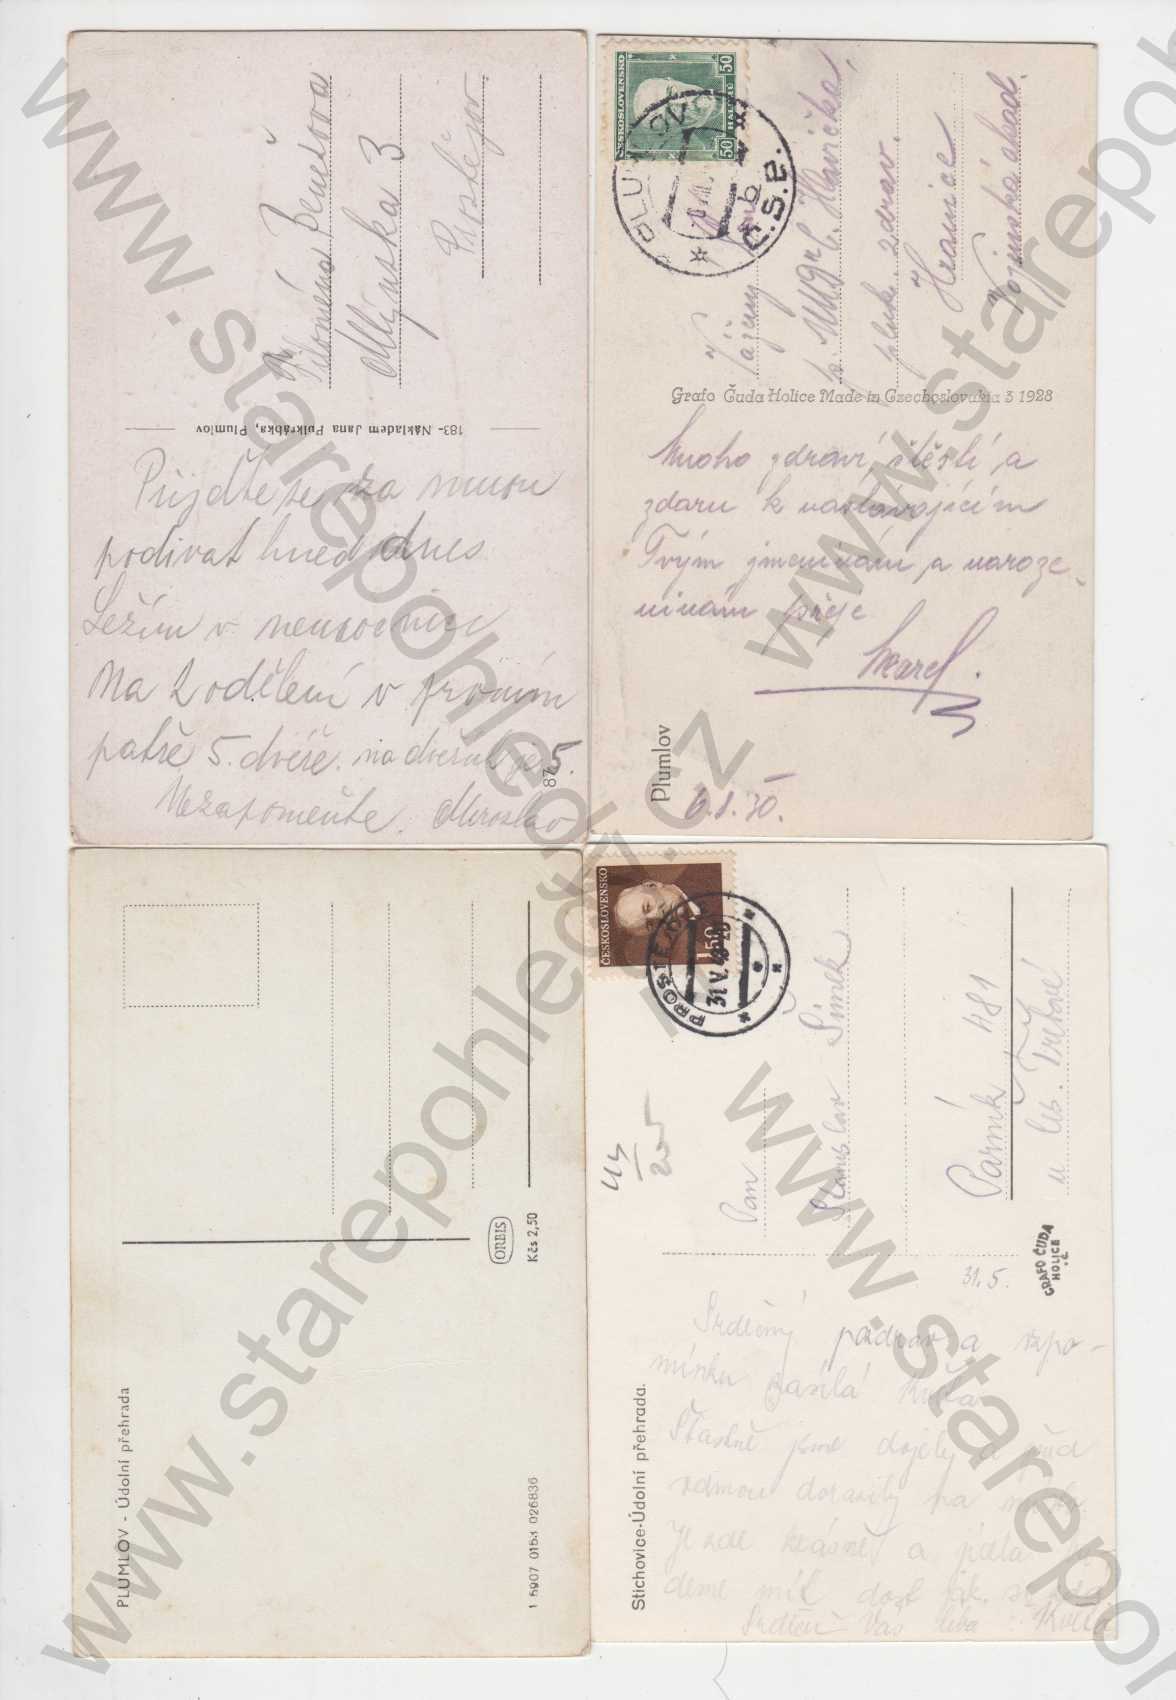 Filoména Benešova
Mlýnska 3
Prostějov
183- Nákladem Jana Pulkrábka, Plumlov
Přijďte se za mnou
podivat hned dnes
Ležím v nemocnici
Na 2 odělení v prvním
patře 5. dvéře. na dveřích je 5.
Nezapomeňte. Miroslav
87
ČESKOSLOVENSKO
50 HALÉŘŮ 50
PLUMLOV
Č.S.P.
Vážený
pluk. zdrav.
Hranice
Vojenská akad.
Grafo Čuda Holice Made in Czechoslovakia 3 1928
Mnoho zdraví, štěstí, a
zdaru k nastávajícím
Tvým jmeninám a naroze-
ninám přeje
Karel.
Plumlov
ORBIS
Kčs 2,50
PLUMLOV - Údolní přehrada
1 5907 0153 026836
ČESKOSLOVENSKO
1.50
PROSTĚJOV
31.V.48-23
Pan
Stanislav Šimek
Parník 481
u Čes. Třebové
GRAFO ČUDA
HOLICE
31.5.
Srdečný pozdrav a vzpo-
mínku zasílá
Šťastně jsme dojely a
Je zde krásně a
deme mít dost
Srdeční Vás
Stichovice-Údolní přehrada.
www.starepohledy.cz